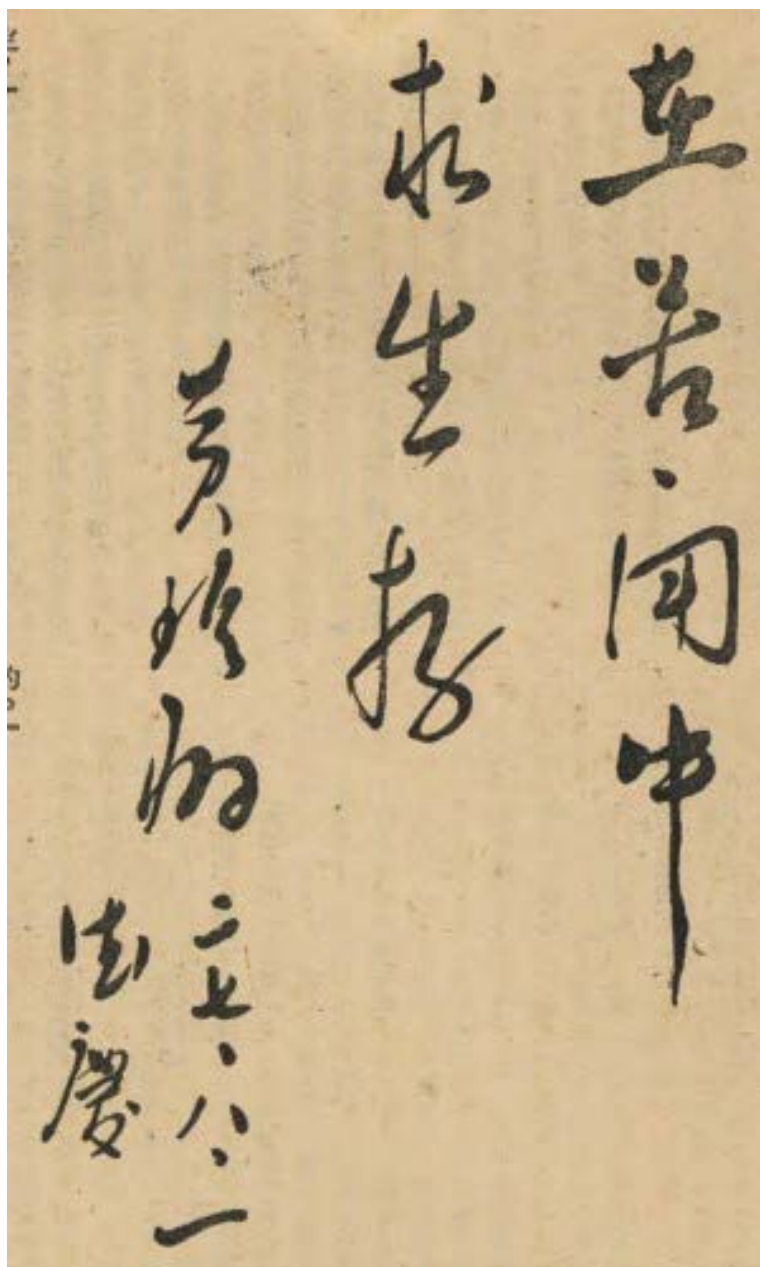 在苦鬥中
求生存
黃琪翔
二七、八、一
慶